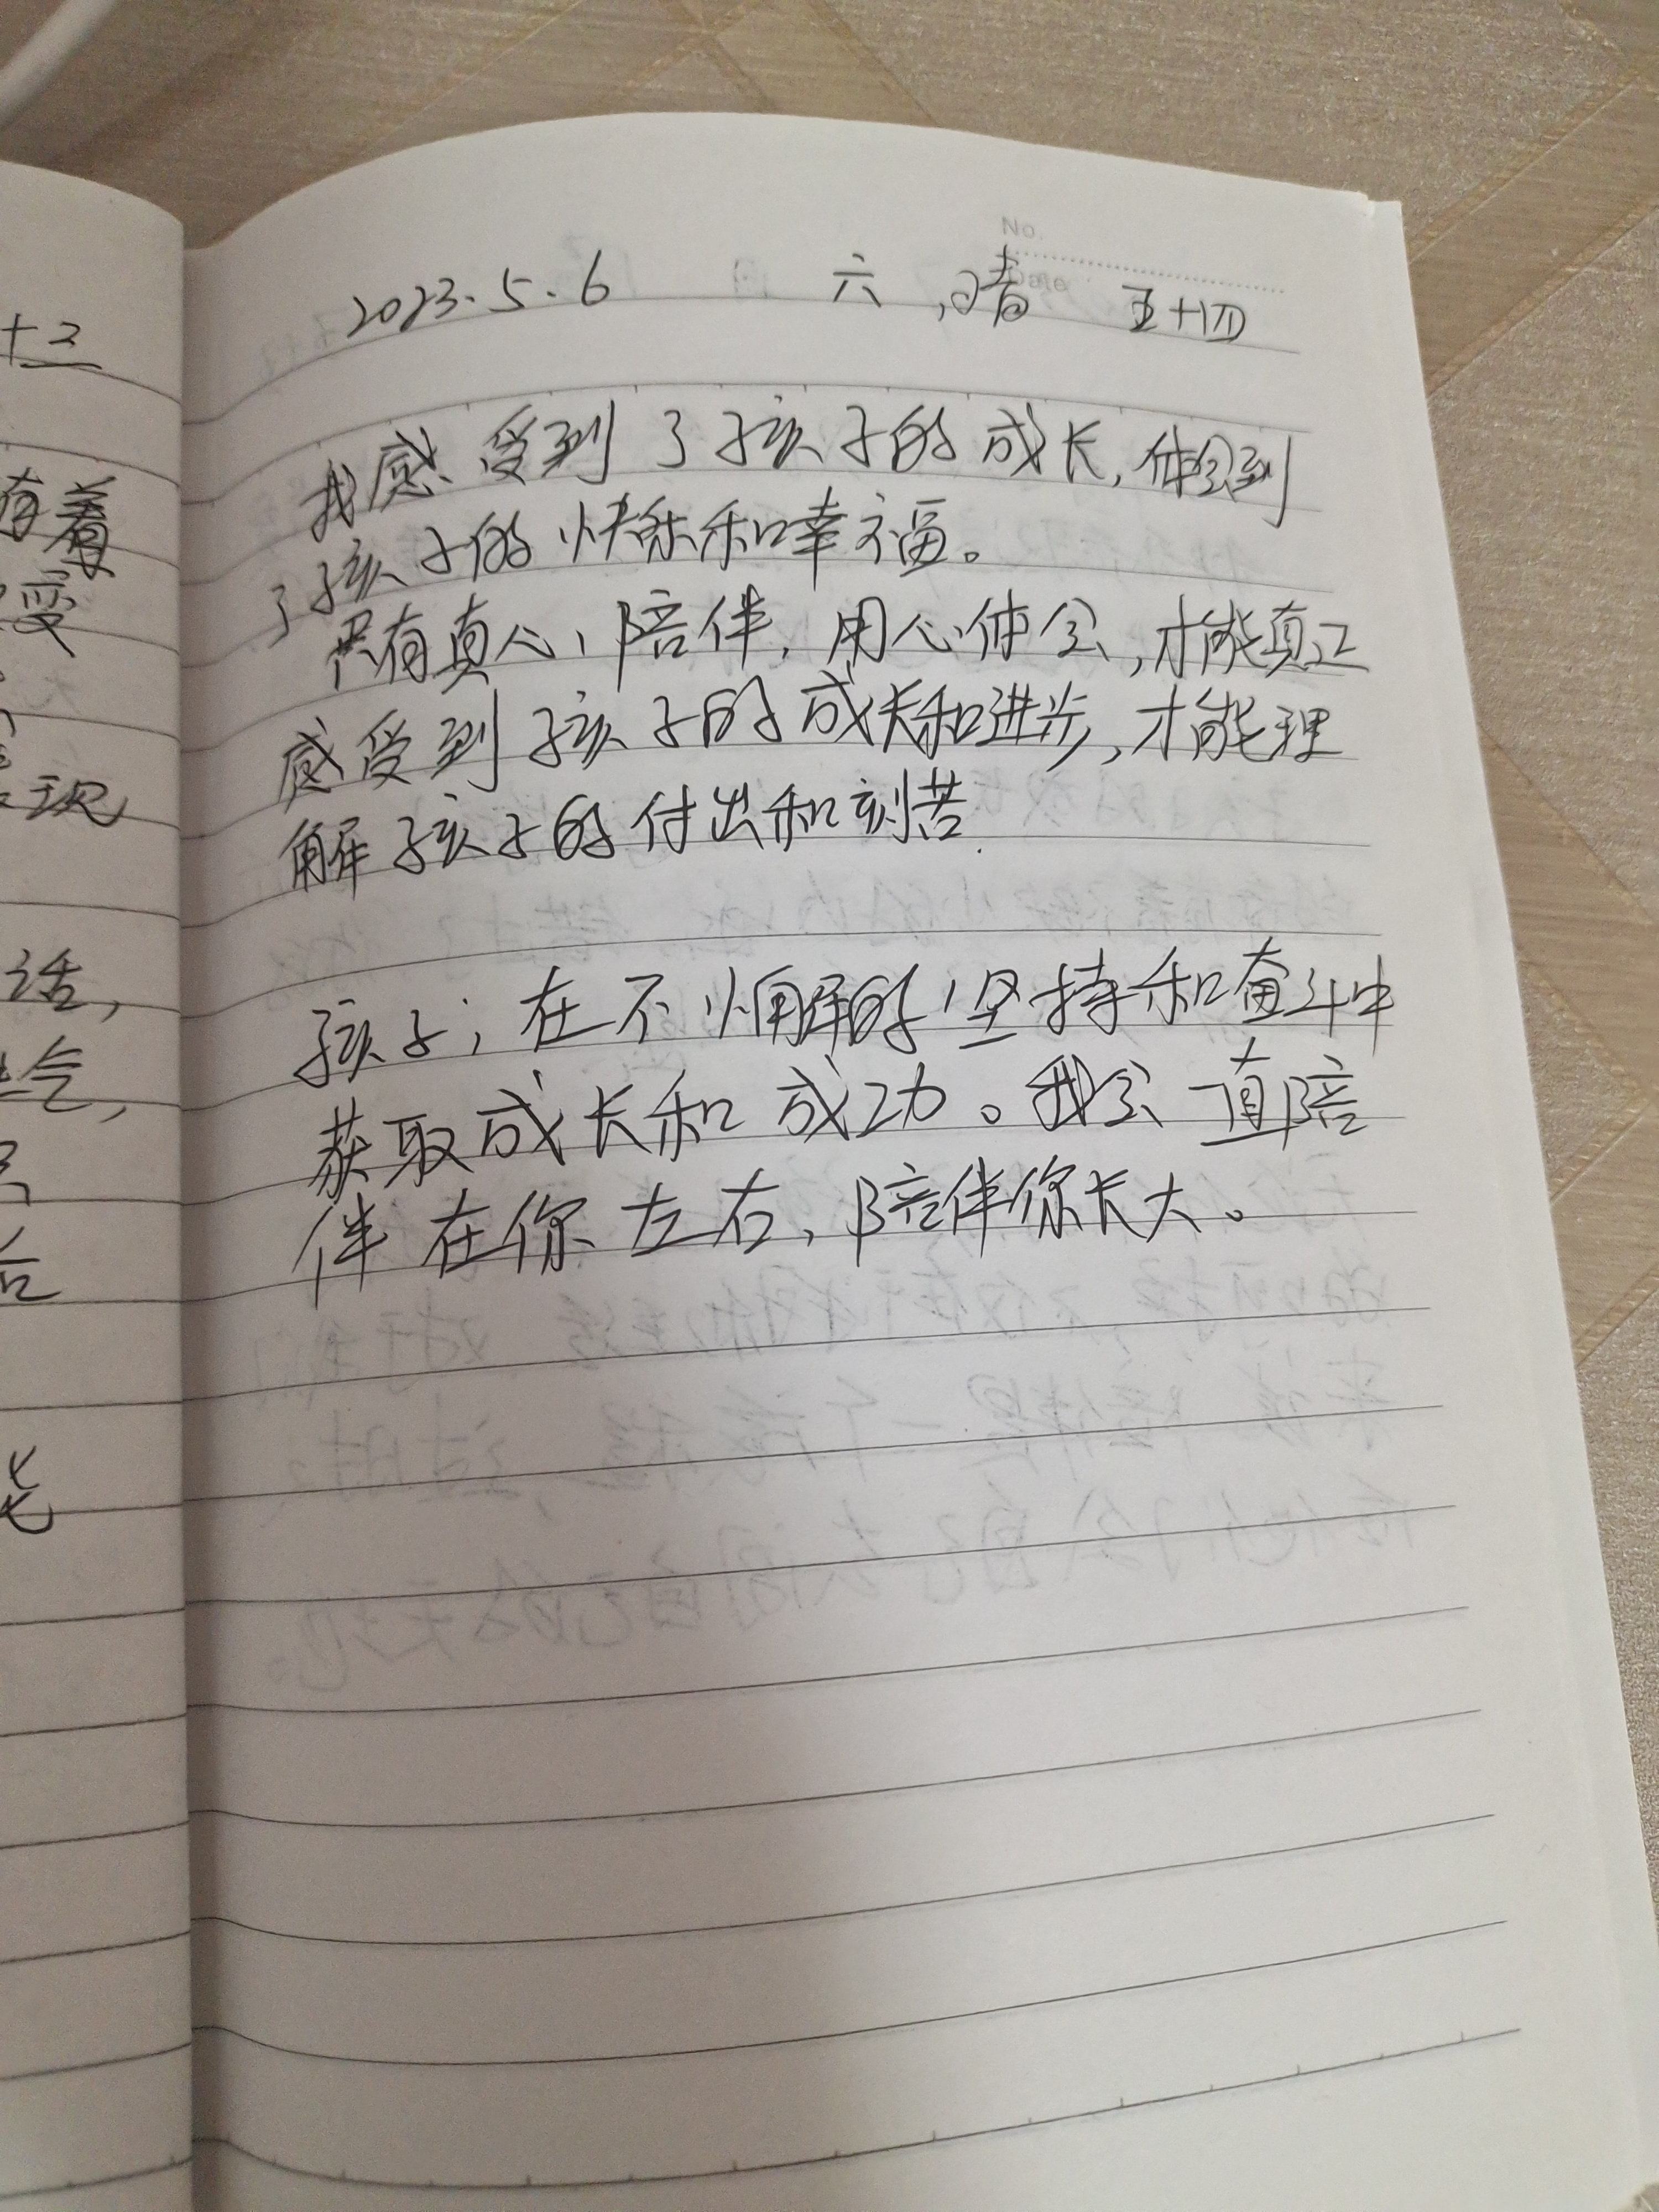 十二
有着
受
现
话,
气,
能
No.
Date
2023.5.6 六 晴 五十四
我感受到了孩子的成长,体会到
了孩子的快乐和幸福。
只有真心、陪伴,用心体会,才能真正
感受到孩子的成长和进步,才能理
解孩子的付出和刻苦.
孩子;在不懈的坚持和奋斗中
获取成长和成功。我会一直陪
伴在你左右,陪伴你长大。